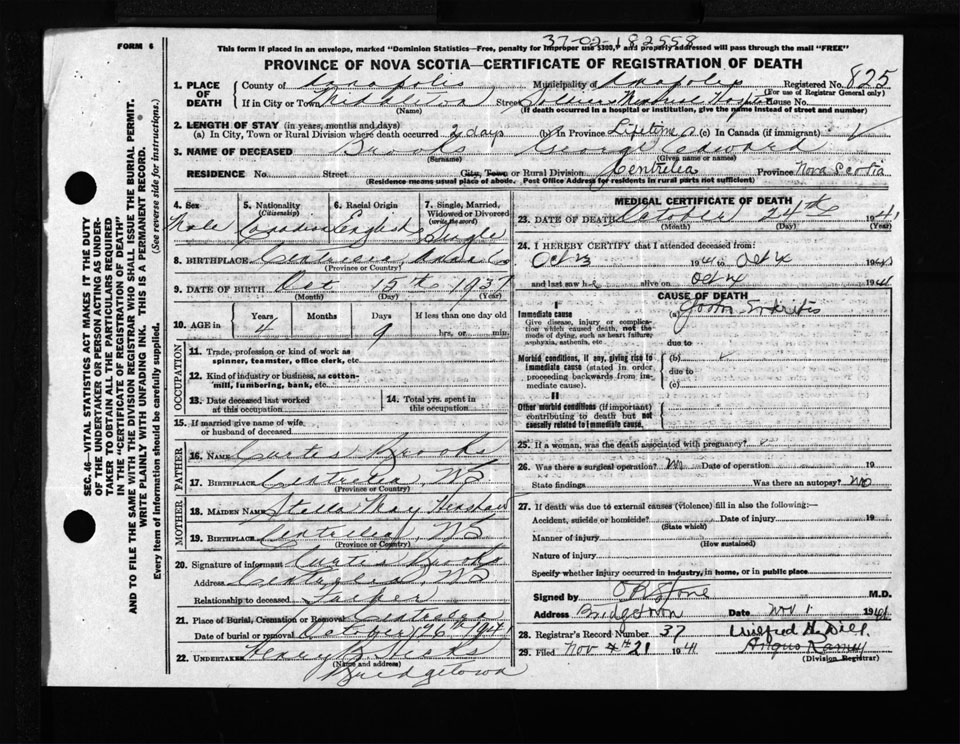 37-02-182558
FORM 6
This form if placed in an envelope, marked "Dominion Statistics—Free, penalty for improper use $300," and properly addressed will pass through the mail "FREE"
PROVINCE OF NOVA SCOTIA—CERTIFICATE OF REGISTRATION OF DEATH
SEC. 46—VITAL STATISTICS ACT MAKES IT THE DUTY
OF THE UNDERTAKER OR PERSON ACTING AS UNDER-
TAKER TO OBTAIN ALL THE PARTICULARS REQUIRED
IN THE "CERTIFICATE OF REGISTRATION OF DEATH"
AND TO FILE THE SAME WITH THE DIVISION REGISTRAR WHO SHALL ISSUE THE BURIAL PERMIT.
WRITE PLAINLY WITH UNFADING INK. THIS IS A PERMANENT RECORD.
Every item of Information should be carefully supplied. (See reverse side for instructions.)
1. PLACE OF DEATH County of Annapolis Municipality of Annapolis Registered No. 825
(For use of Registrar General only)
If in City or Town Street Memorial House No.
(Name) (If death occurred in a hospital or institution, give the name instead of street and number)
2. LENGTH OF STAY (in years, months and days)
(a) In City, Town or Rural Division where death occurred 2 days (b) In Province Lifetime (c) In Canada (if immigrant)
3. NAME OF DECEASED Brooks George Edward
(Surname) (Given name or names)
RESIDENCE No. Street City, Town or Rural Division Centrelea Province Nova Scotia
(Residence means usual place of abode. Post Office Address for residents in rural parts not sufficient)
4. Sex Male
5. Nationality (Citizenship) Canadian
6. Racial Origin English
7. Single, Married, Widowed or Divorced (write the word) Single
8. BIRTHPLACE Centrelea, Anna Co
(Province or Country)
9. DATE OF BIRTH Oct 15th 1937
(Month) (Day) (Year)
10. AGE in Years 4 Months Days 9 If less than one day old hrs. or min.
OCCUPATION
11. Trade, profession or kind of work as spinner, teamster, office clerk, etc.
12. Kind of industry or business, as cotton-mill, lumbering, bank, etc.
13. Date deceased last worked at this occupation
14. Total yrs. spent in this occupation
15. If married give name of wife, or husband of deceased
FATHER
16. NAME Curtis Brooks
17. BIRTHPLACE Centrelea, NS
(Province or Country)
MOTHER
18. MAIDEN NAME Stella May Henshaw
19. BIRTHPLACE Centrelea, NS
(Province or Country)
20. Signature of informant Curtis Brooks
Address Centrelea, NS
Relationship to deceased Father
21. Place of Burial, Cremation or Removal Centrelea
Date of burial or removal October 26th 1941
22. UNDERTAKER Henry B Hicks
(Name and address)
Bridgetown
MEDICAL CERTIFICATE OF DEATH
23. DATE OF DEATH October 24th 1941
(Month) (Day) (Year)
24. I HEREBY CERTIFY that I attended deceased from:
Oct 23 1941 to Oct 24 1941
and last saw h alive on Oct 24 1941
CAUSE OF DEATH
I
Immediate cause
Give disease, injury or complication which caused death, not the mode of dying, such as heart failure, asphyxia, asthenia, etc.
(a)
due to
Morbid conditions, if any, giving rise to immediate cause (stated in order proceeding backwards from immediate cause).
(b)
due to
(c)
II
Other morbid conditions (if important) contributing to death but not causally related to immediate cause.
25. If a woman, was the death associated with pregnancy?
26. Was there a surgical operation? No Date of operation 19
State findings Was there an autopsy? No
27. If death was due to external causes (violence) fill in also the following:—
Accident, suicide or homicide? Date of injury 19
(State which)
Manner of injury
(How sustained)
Nature of injury
Specify whether injury occurred in industry, in home, or in public place
Signed by M.D.
Address Bridgetown Date Nov 1 1941
28. Registrar's Record Number 37 Wilfred H Dill
29. Filed Nov 21 1941 Angus Ramey
(Division Registrar)